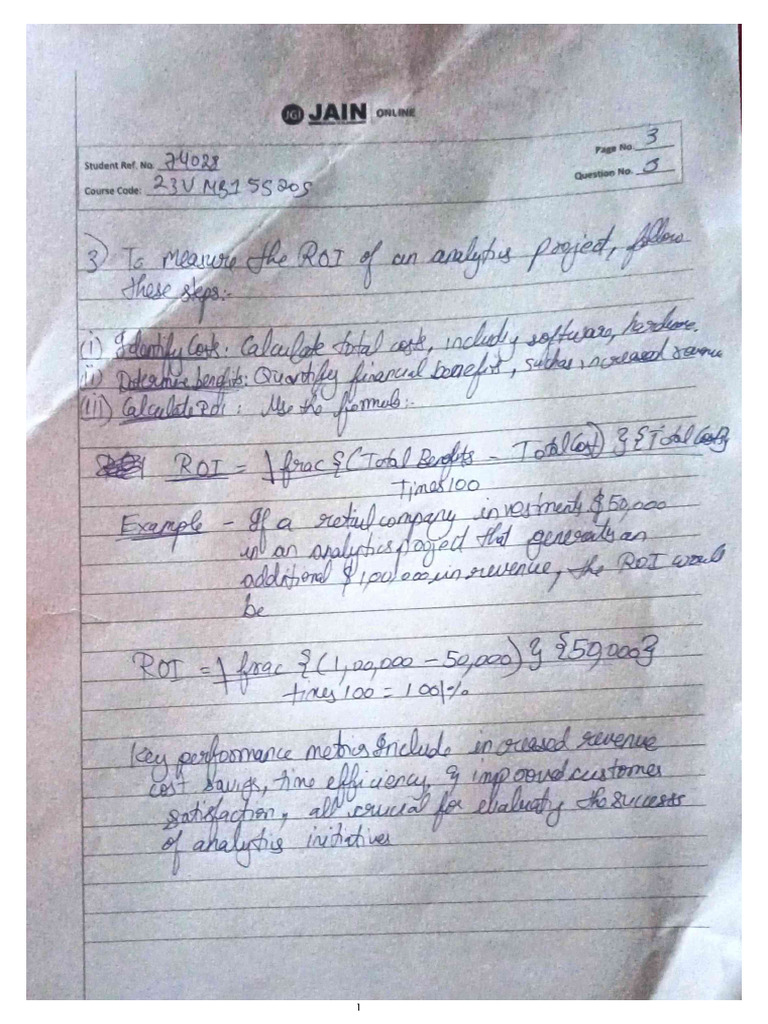 JGI JAIN ONLINE
Page No. 3
Student Ref. No. 74028
Question No. 3
Course Code: 23VMB15S205
3) To measure the ROI of an analytics project, follow
these steps:-
(i) Identify Costs: Calculate total costs, including software, hardware.
ii) Determine benefits: Quantify financial benefits, such as, increased revenue
(iii) Calculate ROI: Use the formula:-
ROI = \frac{(Total Benefits - Total Cost)}{Total Costs}
Times 100
Example - If a retail company investments $50,000
in an analytics project that generates an
additional $1,00,000 in revenue, the ROI would
be
ROI = \frac{(1,00,000 - 50,000)}{50,000}
times 100 = 100\%
Key performance metrics include increased revenue
cost savings, time efficiency, & improved customer
satisfaction, all crucial for evaluating the success
of analytics initiatives
1